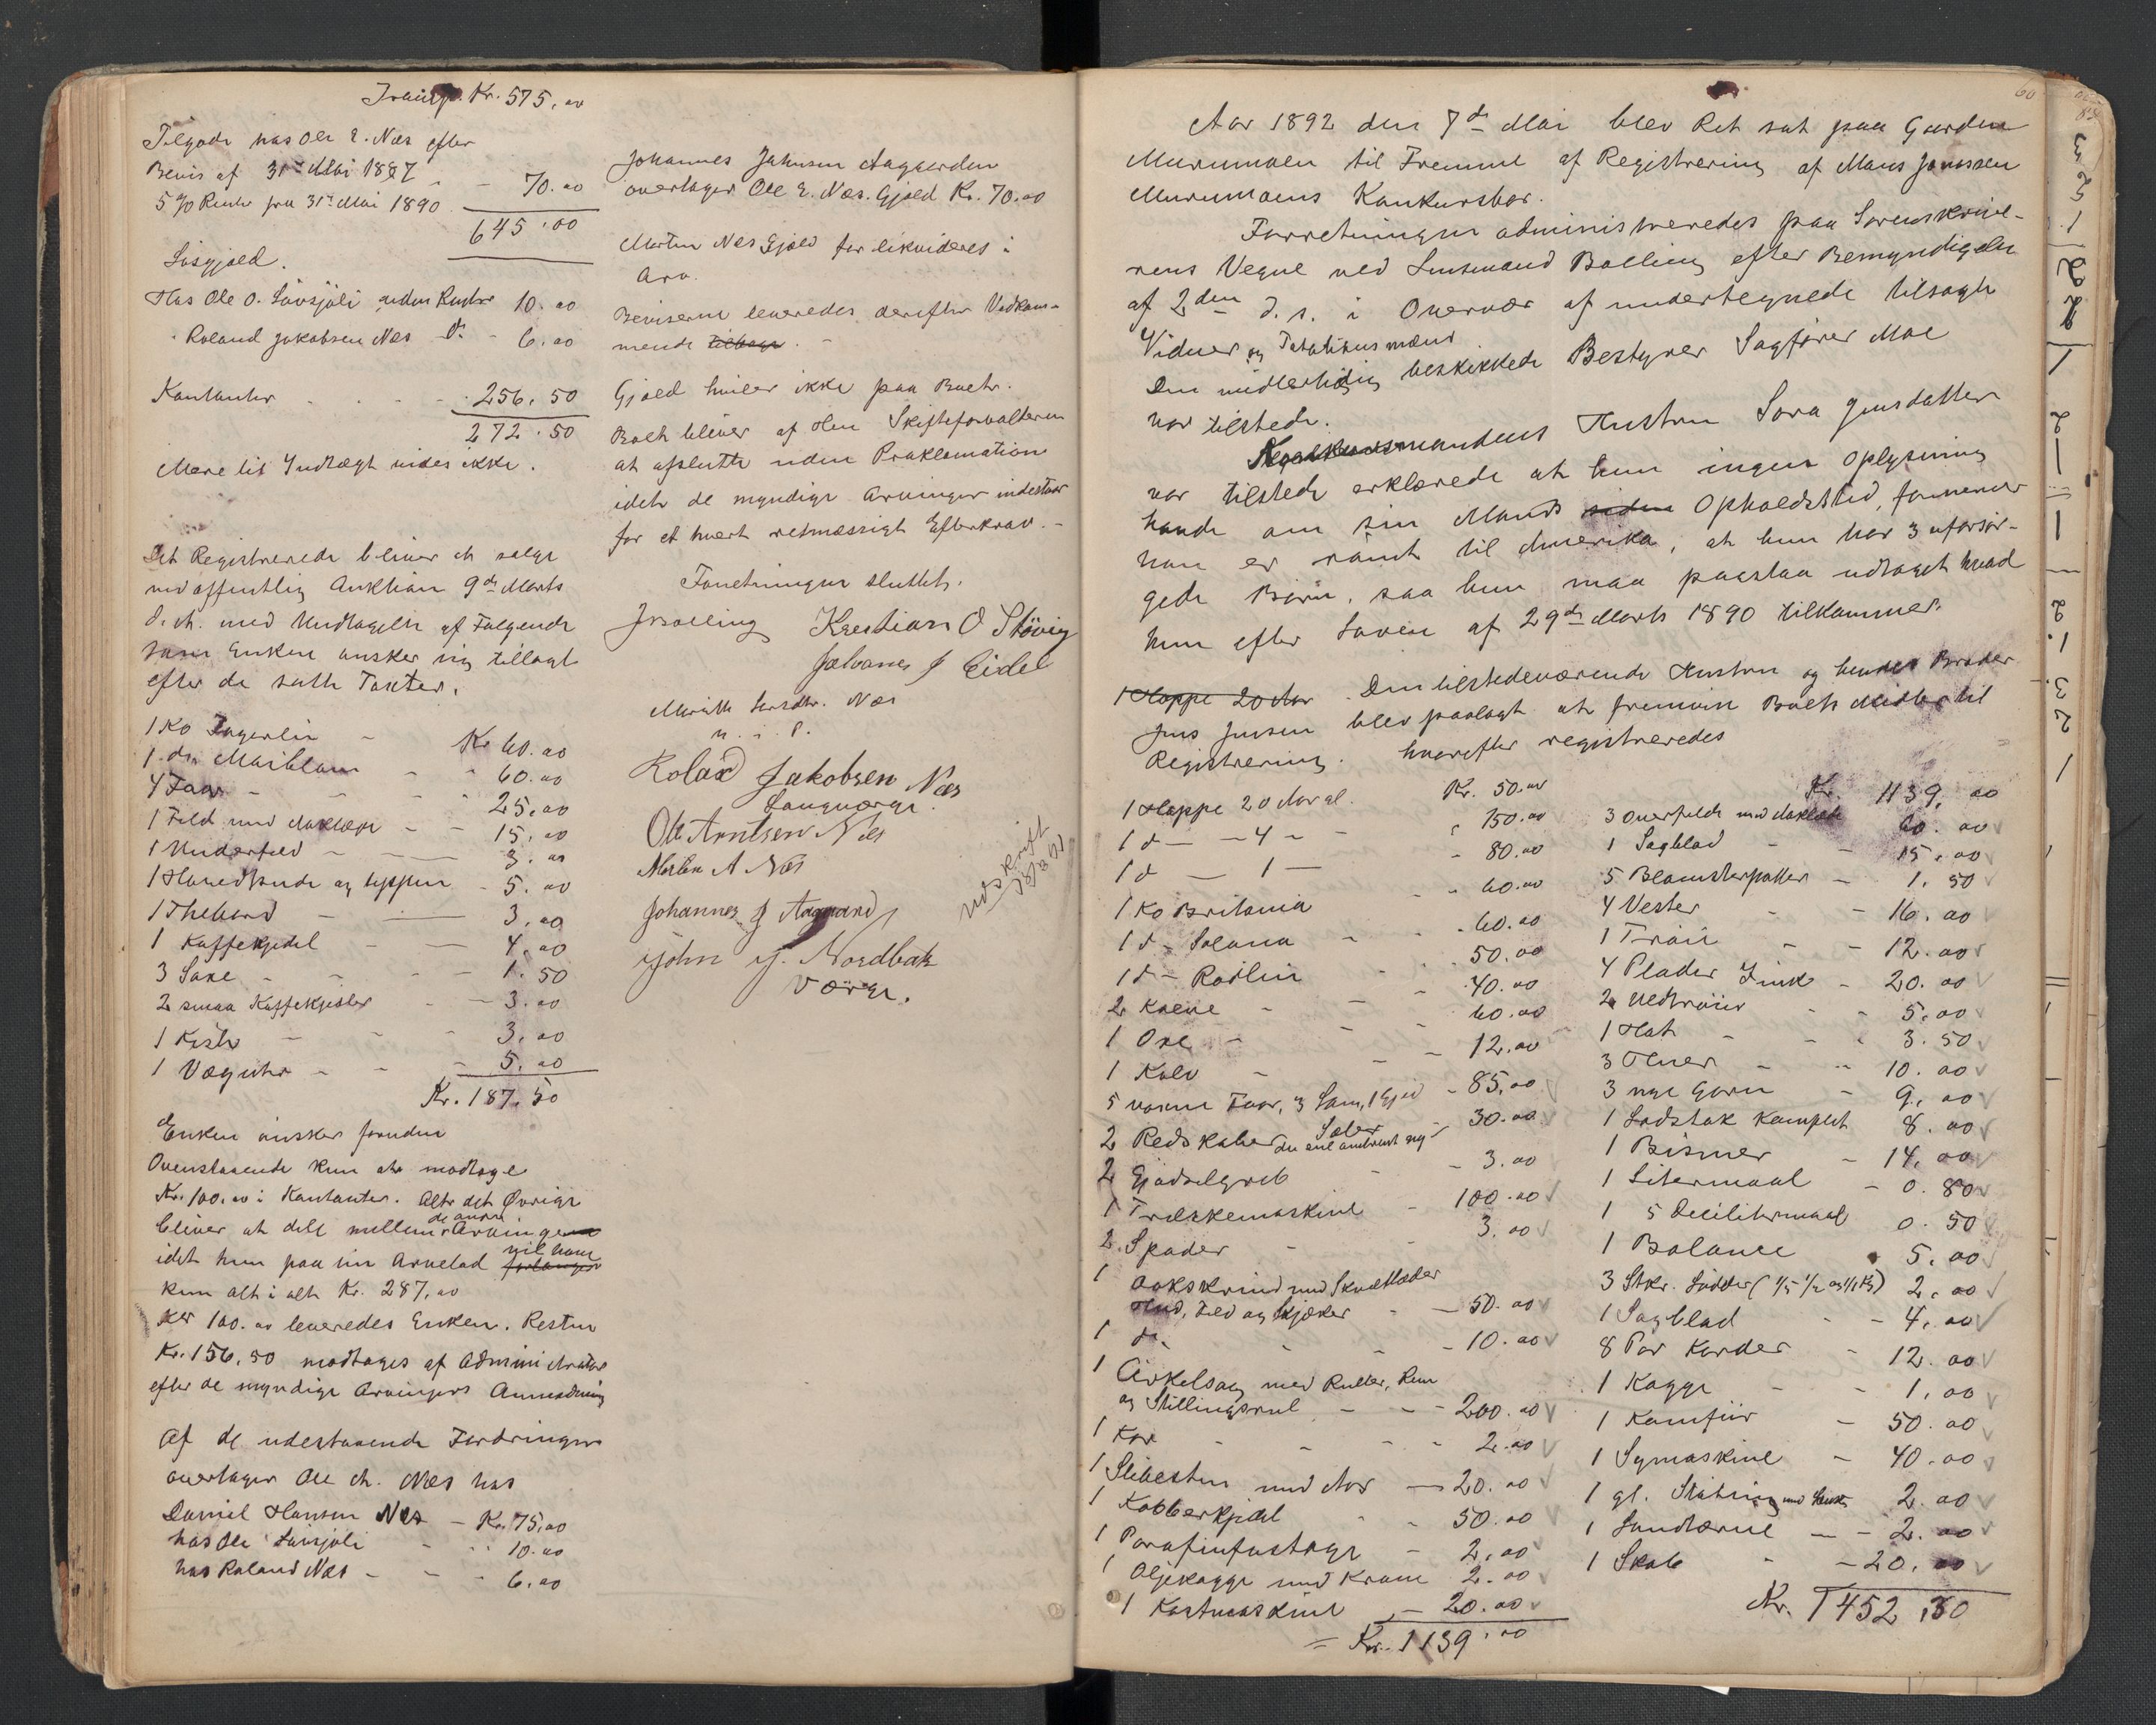 Transp. Kr. 575,00
Tilgode hos Ole E. Næs efter
Bevis af 31te Mai 1887 - - 70.00
5 % Rente fra 31te Mai 1890
645.00
Løsgjæld.
Hos Ole O. Løvsjøli uden Renter 10.00
" Roland Jakobsen Næs do. - 6.00
Kontanter - - - - 256.50
272.50
Mere til Indtægt vides ikke.
Det Registrerede bliver at sælge
ved offentlig Auktion 9de Marts
d. A. med Undtagelse af Følgende
som Enken ønsker sig tillagt
efter de satte Taxter.
1 Ko Fagerlin - Kr. 60.00
1 do. Mariblom - - 60.00
4 Faar - - - 25,00
1 Feld med Aaklæde - - 15.00
1 Underfeld - - 3.00
1 Hovedpude og Teppen - 5.00
1 Thebord - - 3.00
1 Kaffekjedel - - 4.00
3 Saxe - - - 1.50
2 smaa Kaffekjedler - - 3.00
1 Kiste - - - 3.00
1 Væguhr - - - 5.00
Kr. 187.50
Enken ønsker foruden
Ovenstaaende kun at modtage
Kr. 100.00 i Kontanter. Alt det Øvrige
bliver at dele mellem de andre Arvinger
idet hun paa sin Arvelod forlanger vil have
kun alt i alt Kr. 287,00
Kr 100.00 leveredes Enken. Resten
Kr. 156,50 modtages af Administrator
efter de myndige Arvingers Anmodning
Af de udestaaende Fordringer
overtager Ole A. Næs hos
Daniel Hansen Næs - Kr. 75,00
hos Ole Løvsjøli - - 10.00
hos Roland Næs - - - 6,00
Johannes Johnsen Aagaarden
overtager Ole E. Næs. Gjæld Kr. 70.00
Morten Næs Gjæld for likvideres i
Arv.
Beviserne leveredes derefter Vedkom-
mende tilbage. -
Gjæld hviler ikke paa Boet.
Boet bliver af Hr. Skifteforvalteren
at afslutte uden Proklamation
idet de myndige Arvinger indestaar
for et hvert retmæssigt Efterkrav. -
Forretningen sluttet.
JBolling Kristian O Støvig
Johannes J Eidet
Merith Larsdtr. Næs
m. i. P.
Rolad Jakobsen Næs
Laugværge.
Ole Arntsen Næs
Morten A Næs
Johannes J Aagaard
John J. Nordbak
Værge.
Udskrift
Aar 1892 den 7de Mai blev Ret sat paa Gaarden
Murumoen til Fremme af Registrering af Mons Jonassen
Murumoens Konkursbo.
Forretningen administreredes paa Sorenskrive-
rens Vegne ved Lensmand Bolling efter Bemyndigelse
af 2den d. s. i Overvær af undertegnede tilsagte
Vidner og Taxationsmænd
Den midlertidig beskikkede Bestyrer Sagfører Moe
var tilstede.
Konkursmandens Hustru Sara Jensdatter
var tilstede erklærede at hun ingen Oplysning
havde om sin Mands siden Opholdssted, formener
han er rømt til Amerika, at hun har 3 uforsør-
gede Børn, saa hun maa paastaa udtaget hvad
hun efter Loven af 29de Marts 1890 tilkommer.
1 Hoppe 20 Aar Den tilstedeværende Hustru og hendes Broder
Jens Jensen blev paalagt at fremvise Boets Midler til
Registrering. hvorefter registreredes
1 Hoppe 20 Aar gl. Kr. 50.00
1 d - 4 - - " 150.00
1 d - 1 - - 80.00
1 Ko Britania - 60.00
1 d - Solana - - 60.00
1 d - Roslin - 50.00
2 Kvier - - 40.00
1 Oxe - - - 60.00
1 Kalv - - - 12.00
5 voxne Faar, 3 Lam, 1 Gjed - 85,00
2 Redskaber Saler - 30.00
2 Gjødselgreb - - 3.00
1 Træskemaskine - 100.00
2 Spader - - 3.00
1
Hud, Feld og Skjæker - - 50.00
1 do. - - - 10.00
1 Cirkelsag med Ruller, Rem
og Stillingshul - - - 200.00
1 Kar - - - - 2.00
1 Slibesten med Aas - 20.00
1 Kobberkjedel - - 50.00
1 Parafinfustage - 2.00
1 Oljekagge med Krane 2.00
1 Kastmaskine - 20.00
= Kr. 1139.00
Kr. 1139,00
3 Overfelde med Aaklæde 60.00
1 Sagblad - - 15.00
5 Blomsterpotter - 1.50
4 Vester - - 16.00
1 Trøie - - 12.00
4 Plader Zink - 20.00
2 Uldtrøier - - 5.00
1 Hat - - - 3.50
3 Huer - - 10.00
3 nye Garn - 9.00
1 Ladstok komplet 8.00
1 Bismer - 14.00
1 Litermaal - 0.80
1 5 Decilitermaal 0.50
1 Balance - 5.00
3 Stkr. Lodder (1/5 1/2 og 1/1 Kg) 2.00
1 Sagblad - - 4.00
8 Par Karder - 12.00
1 Kagge - - 1.00
1 Komfür - 50.00
1 Symaskine - 40.00
1 gl. 2.00
1 Landtærne - - 2.00
1 Skab - - 20.00
Kr. 1452,30